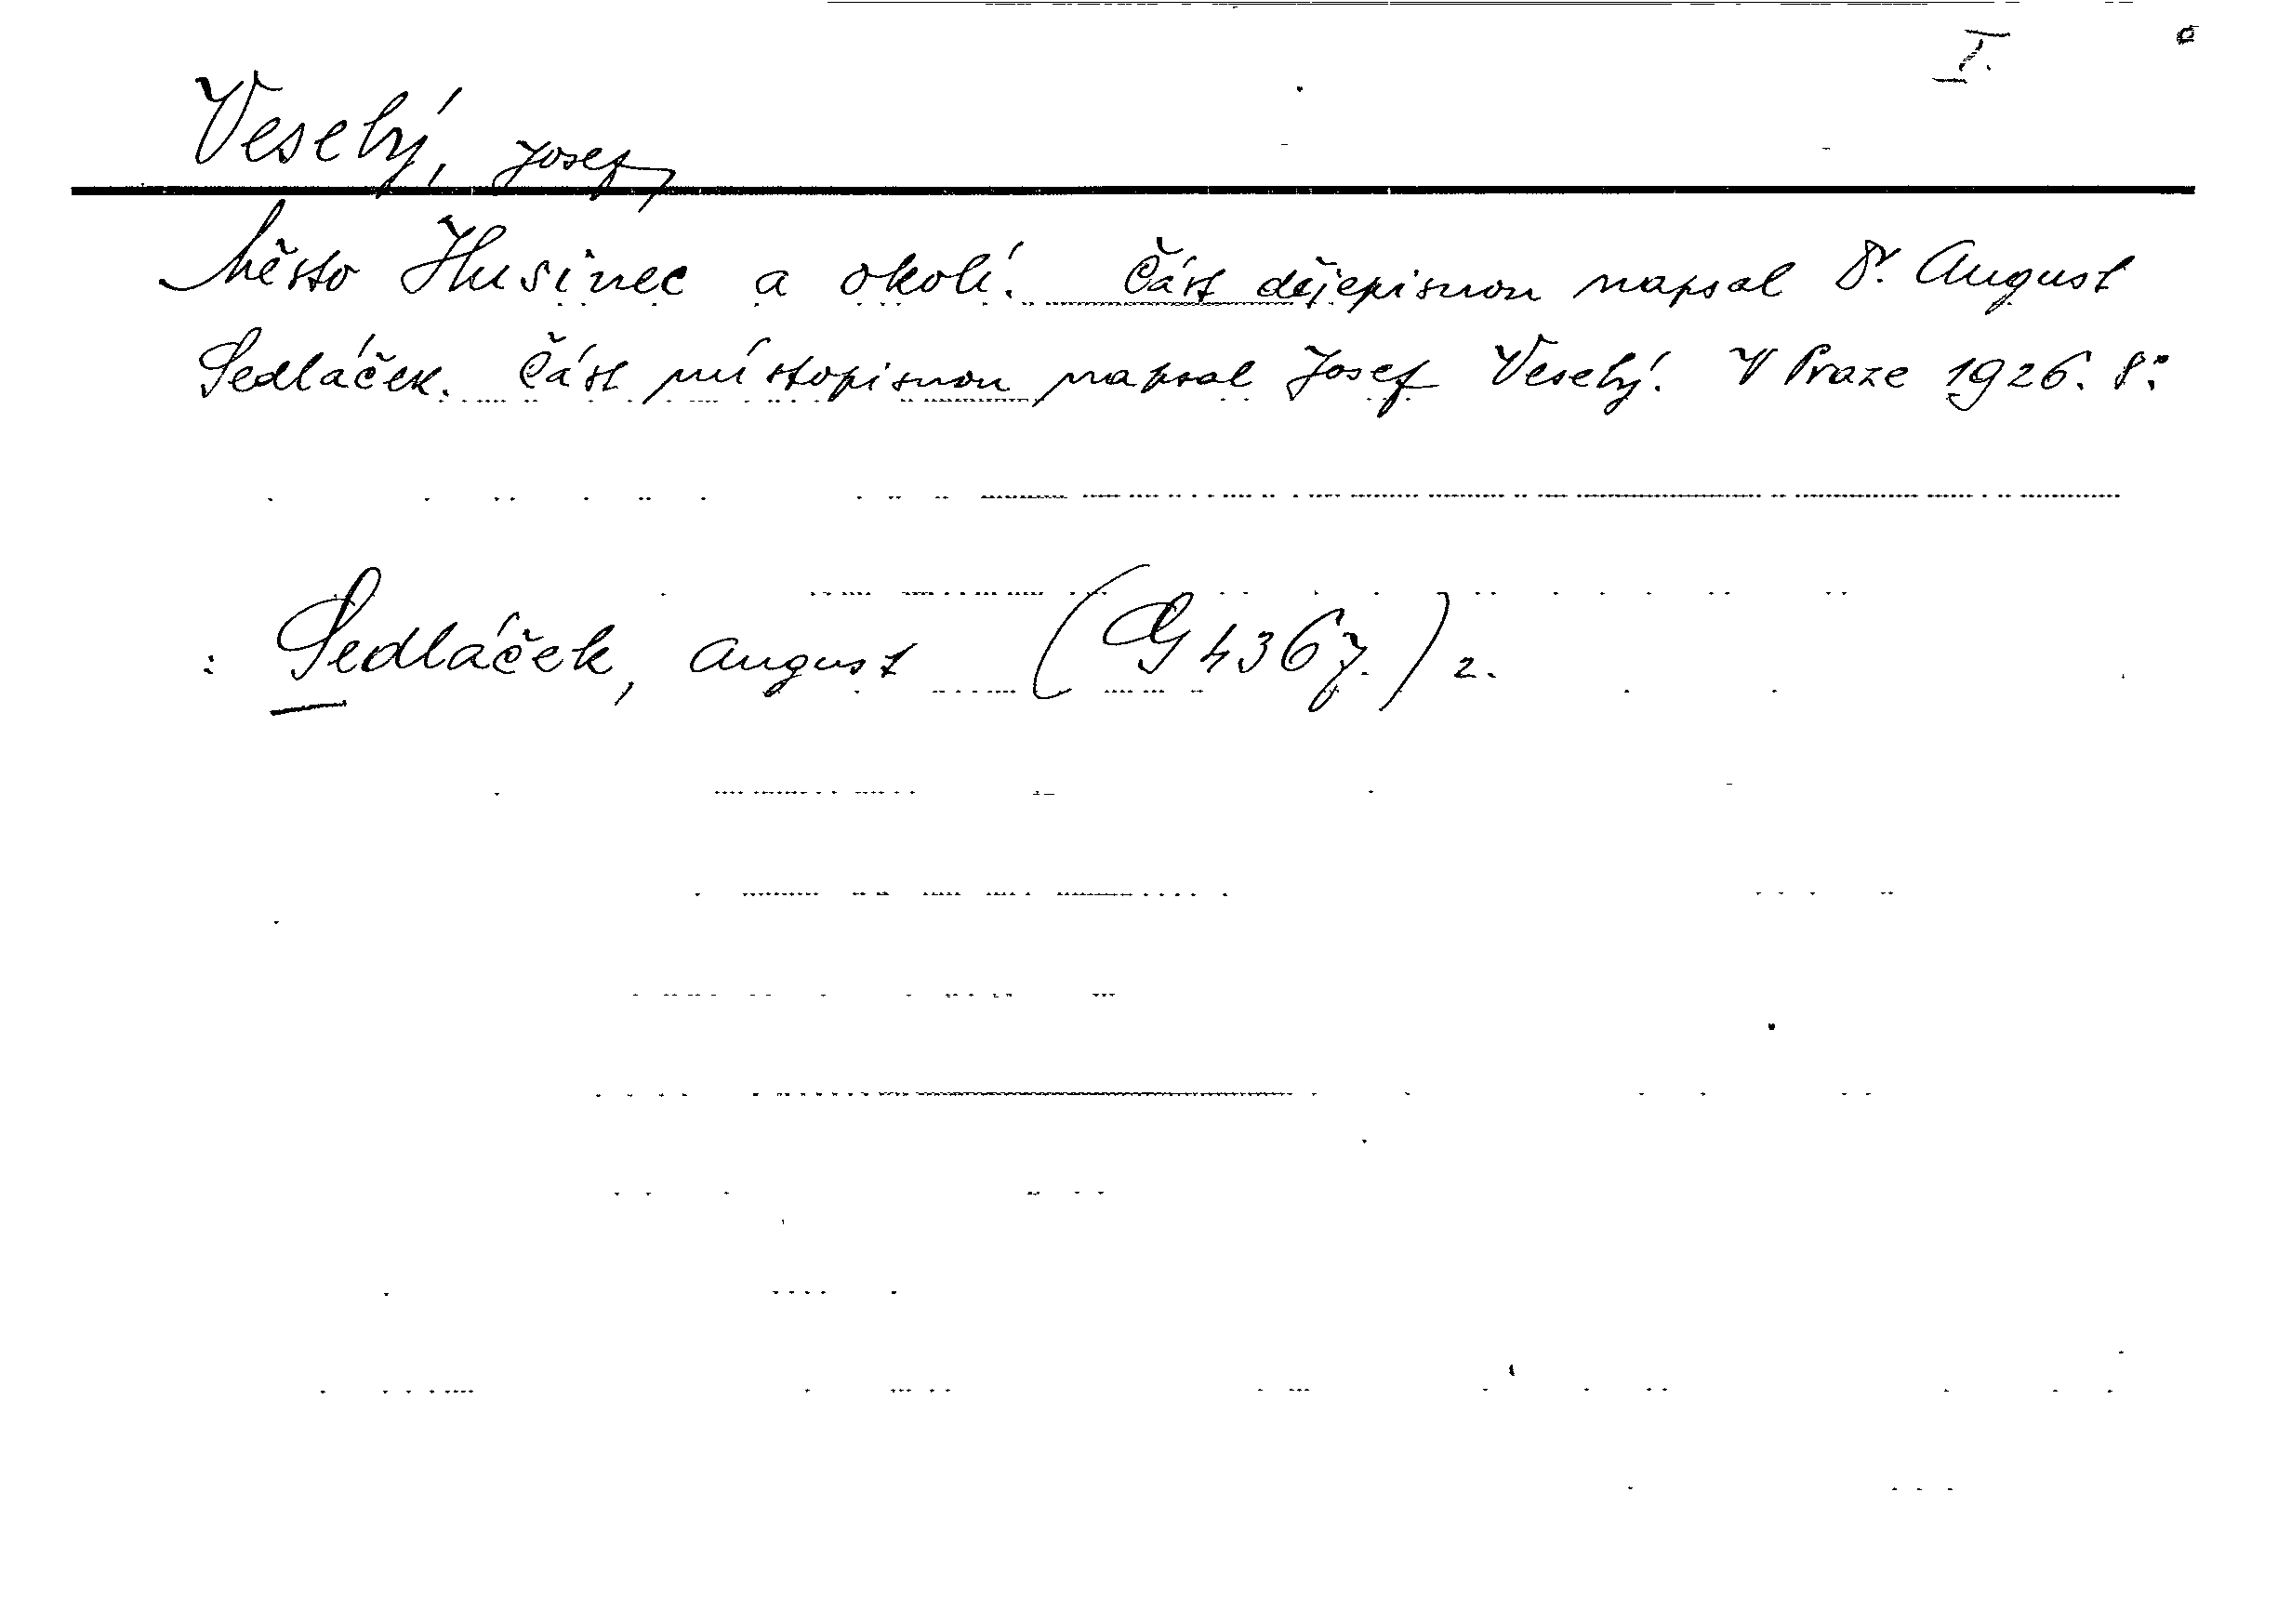 I.
Veselý, Josef,
Město Husinec a okolí. Část dějepisnou napsal Dr. August
Sedláček. Část místopisnou napsal Josef Veselý. V Praze 1926. 8°.
: Sedláček, August (G 4367.) 2.